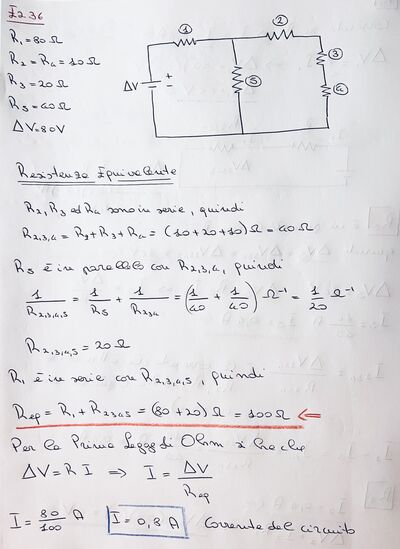 I2.36
R₁ = 80 Ω
R₂ = R₄ = 10 Ω
R₃ = 20 Ω
R₅ = 40 Ω
ΔV = 80V
1
2
3
4
5
ΔV
+
-
Resistenza Equivalente
R₂, R₃ ed R₄ sono in serie, quindi
R₂,₃,₄ = R₂ + R₃ + R₄ = (10 + 20 + 10) Ω = 40 Ω
R₅ è in parallelo con R₂,₃,₄, quindi
1/R₂,₃,₄,₅ = 1/R₅ + 1/R₂₃₄ = (1/40 + 1/40) Ω⁻¹ = 1/20 Ω⁻¹
R₂,₃,₄,₅ = 20 Ω
R₁ è in serie con R₂,₃,₄,₅, quindi
Req = R₁ + R₂₃₄₅ = (80 + 20) Ω = 100 Ω ⇐
Per la Prima Legge di Ohm si ha che
ΔV = R I ⇒ I = ΔV/Req
I = 80/100 A I = 0,8 A Corrente del circuito